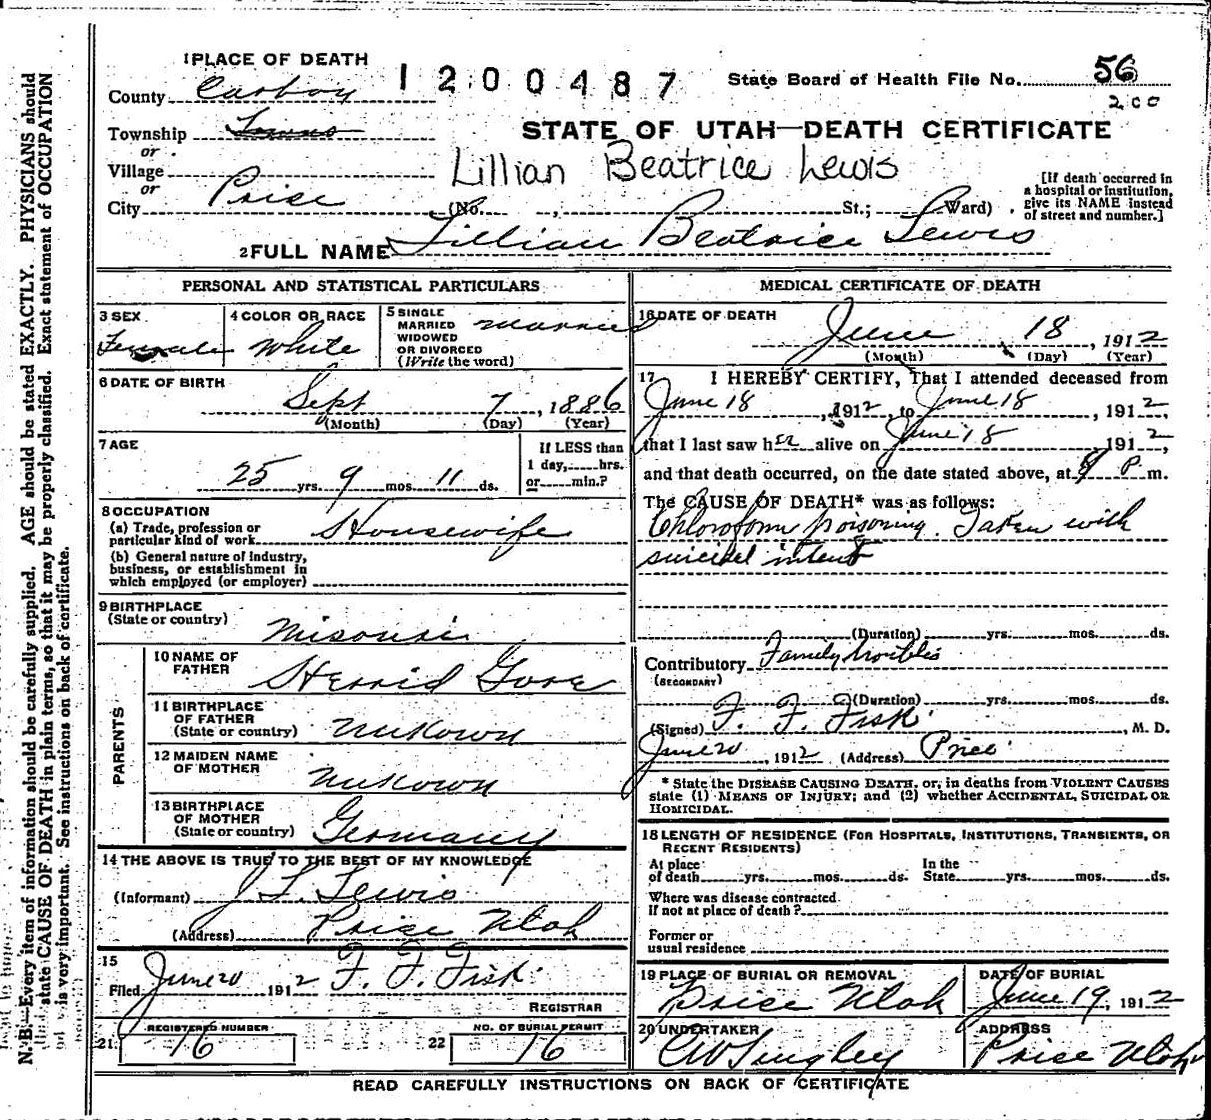 1 PLACE OF DEATH
1200487
State Board of Health File No. 56
200
County Carbon
Township Towns
or
Village
or
City Price (No. , St.; Ward)
STATE OF UTAH—DEATH CERTIFICATE
Lillian Beatrice Lewis
[If death occurred in
a hospital or institution,
give its NAME instead
of street and number.]
2 FULL NAME Lillian Beatrice Lewis
PERSONAL AND STATISTICAL PARTICULARS
3 SEX
Female
4 COLOR OR RACE
White
5 SINGLE
MARRIED
WIDOWED
OR DIVORCED
(Write the word)
Married
6 DATE OF BIRTH
Sept 7, 1886
(Month) (Day) (Year)
7 AGE
25 yrs. 9 mos. 11 ds.
If LESS than
1 day, hrs.
or min.?
8 OCCUPATION
(a) Trade, profession or
particular kind of work Housewife
(b) General nature of industry,
business, or establishment in
which employed (or employer)
9 BIRTHPLACE
(State or country)
Misouri
PARENTS
10 NAME OF
FATHER
Herrid Gore
11 BIRTHPLACE
OF FATHER
(State or country) Unkown
12 MAIDEN NAME
OF MOTHER
Unkown
13 BIRTHPLACE
OF MOTHER
(State or country) Germany
14 THE ABOVE IS TRUE TO THE BEST OF MY KNOWLEDGE
(Informant) J L Lewis
(Address) Price Utah
15
Filed June 20 1912 F. F. Fisk
REGISTRAR
21 REGISTERED NUMBER
16
22 NO. OF BURIAL PERMIT
16
MEDICAL CERTIFICATE OF DEATH
16 DATE OF DEATH
June 18, 1912
(Month) (Day) (Year)
17 I HEREBY CERTIFY, That I attended deceased from
June 18, 1912, to June 18, 1912,
that I last saw her alive on June 18, 1912,
and that death occurred, on the date stated above, at P m.
The CAUSE OF DEATH* was as follows:
Chloroform poisoning. Taken with
suicidal intent
(Duration) yrs. mos. ds.
Contributory Family troubles
(SECONDARY)
(Duration) yrs. mos. ds.
(Signed) F. F. Fisk, M. D.
June 20, 1912 (Address) Price
* State the DISEASE CAUSING DEATH, or, in deaths from VIOLENT CAUSES
state (1) MEANS OF INJURY; and (2) whether ACCIDENTAL, SUICIDAL OR
HOMICIDAL.
18 LENGTH OF RESIDENCE (FOR HOSPITALS, INSTITUTIONS, TRANSIENTS, OR
RECENT RESIDENTS)
At place
of death yrs. mos. ds.
In the
State yrs. mos. ds.
Where was disease contracted
if not at place of death?
Former or
usual residence
19 PLACE OF BURIAL OR REMOVAL
Price Utah
DATE OF BURIAL
June 19, 1912
20 UNDERTAKER
ADDRESS
Price Utah
READ CAREFULLY INSTRUCTIONS ON BACK OF CERTIFICATE
N.B.—Every item of information should be carefully supplied. AGE should be stated EXACTLY. PHYSICIANS should
state CAUSE OF DEATH in plain terms, so that it may be properly classified. Exact statement of OCCUPATION
is very important. See instructions on back of certificate.